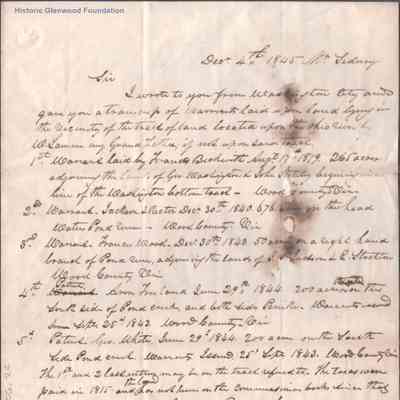 Historic Glenwood Foundation
Decr 4th 1845 Mt Sidney
Sir
I wrote to you from Washington City and
gave you a transcript of warrants laid upon land lying in
the vicinity of the tract of land located upon the Ohio River by
my Grand Father, if not upon said tract
1st Warrant laid by Augt 17th 1819. 265 acres
adjoining the lands of Geo Washington & John
line of the Washington bottom tract - Wood County Via
2nd Warrant. Jackson Decr 30th 1840. 676 acres on the head
Water Pond run - Wood County. Via
3d Warrant. Francis Wood. Decr 30th 1840. 50 acres on a right hand
branch of Pond run, adjoining the lands of
Wood County Via
4th June 29th 1844. 200 acres on the
side of Pond creek and both sides Warrant issued
Sept. 25th 1842 Wood County, Via
5th Patent Geo. White June 29th 1844. 200 acres on the South
side Pond creek Warrant Issued 25th Sept 1843. Wood County Via
The 1st and 2 last entries may be on the tract refered to. The taxes were
paid in 1815 and has not been on the commissioners books since that